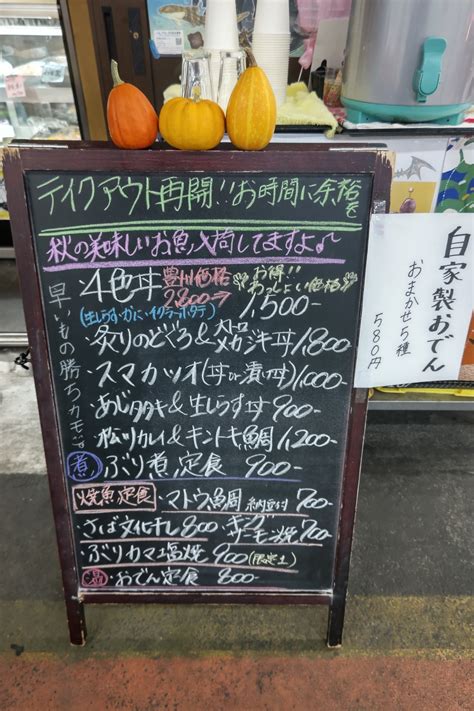 テイクアウト再開!!お時間に余裕を
秋の美味しいお魚入荷してますよ
早いもの勝ちカモ
・4色丼 豊川価格 2,800→ お得!! おっしょい価格 1,500-
(生しらす・かに・イクラ・ホタテ)
・炙りのどぐろ&大トロメカジキ丼 1,800-
・スマカツオ(丼or漬い丼) 1,000-
・あじタタキ&生しらす丼 900-
・松川カレイ&キントキ鯛 1,200-
煮 ぶり煮定食 900-
焼魚定食・マトウ鯛 納豆付 700-
・さば文化干し 800・キングサーモン焼 700-
・ぶりカマ塩焼 900(限定1)
・おでん定食 800-
自家製おでん
おまかせ5種
580円